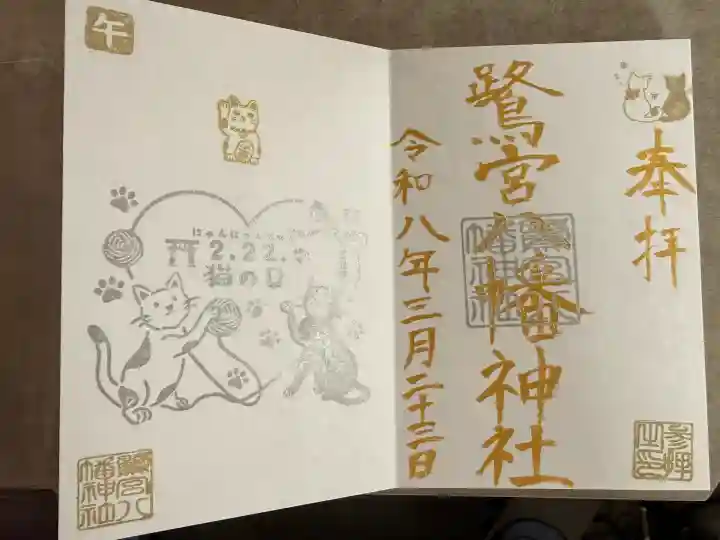 奉拝
鷺宮八幡神社
令和八年三月二十三日
鷺宮八
幡神社
参拝
之印
午
にゃんにゃん
2.22.
猫の日
鷺宮八
幡神社